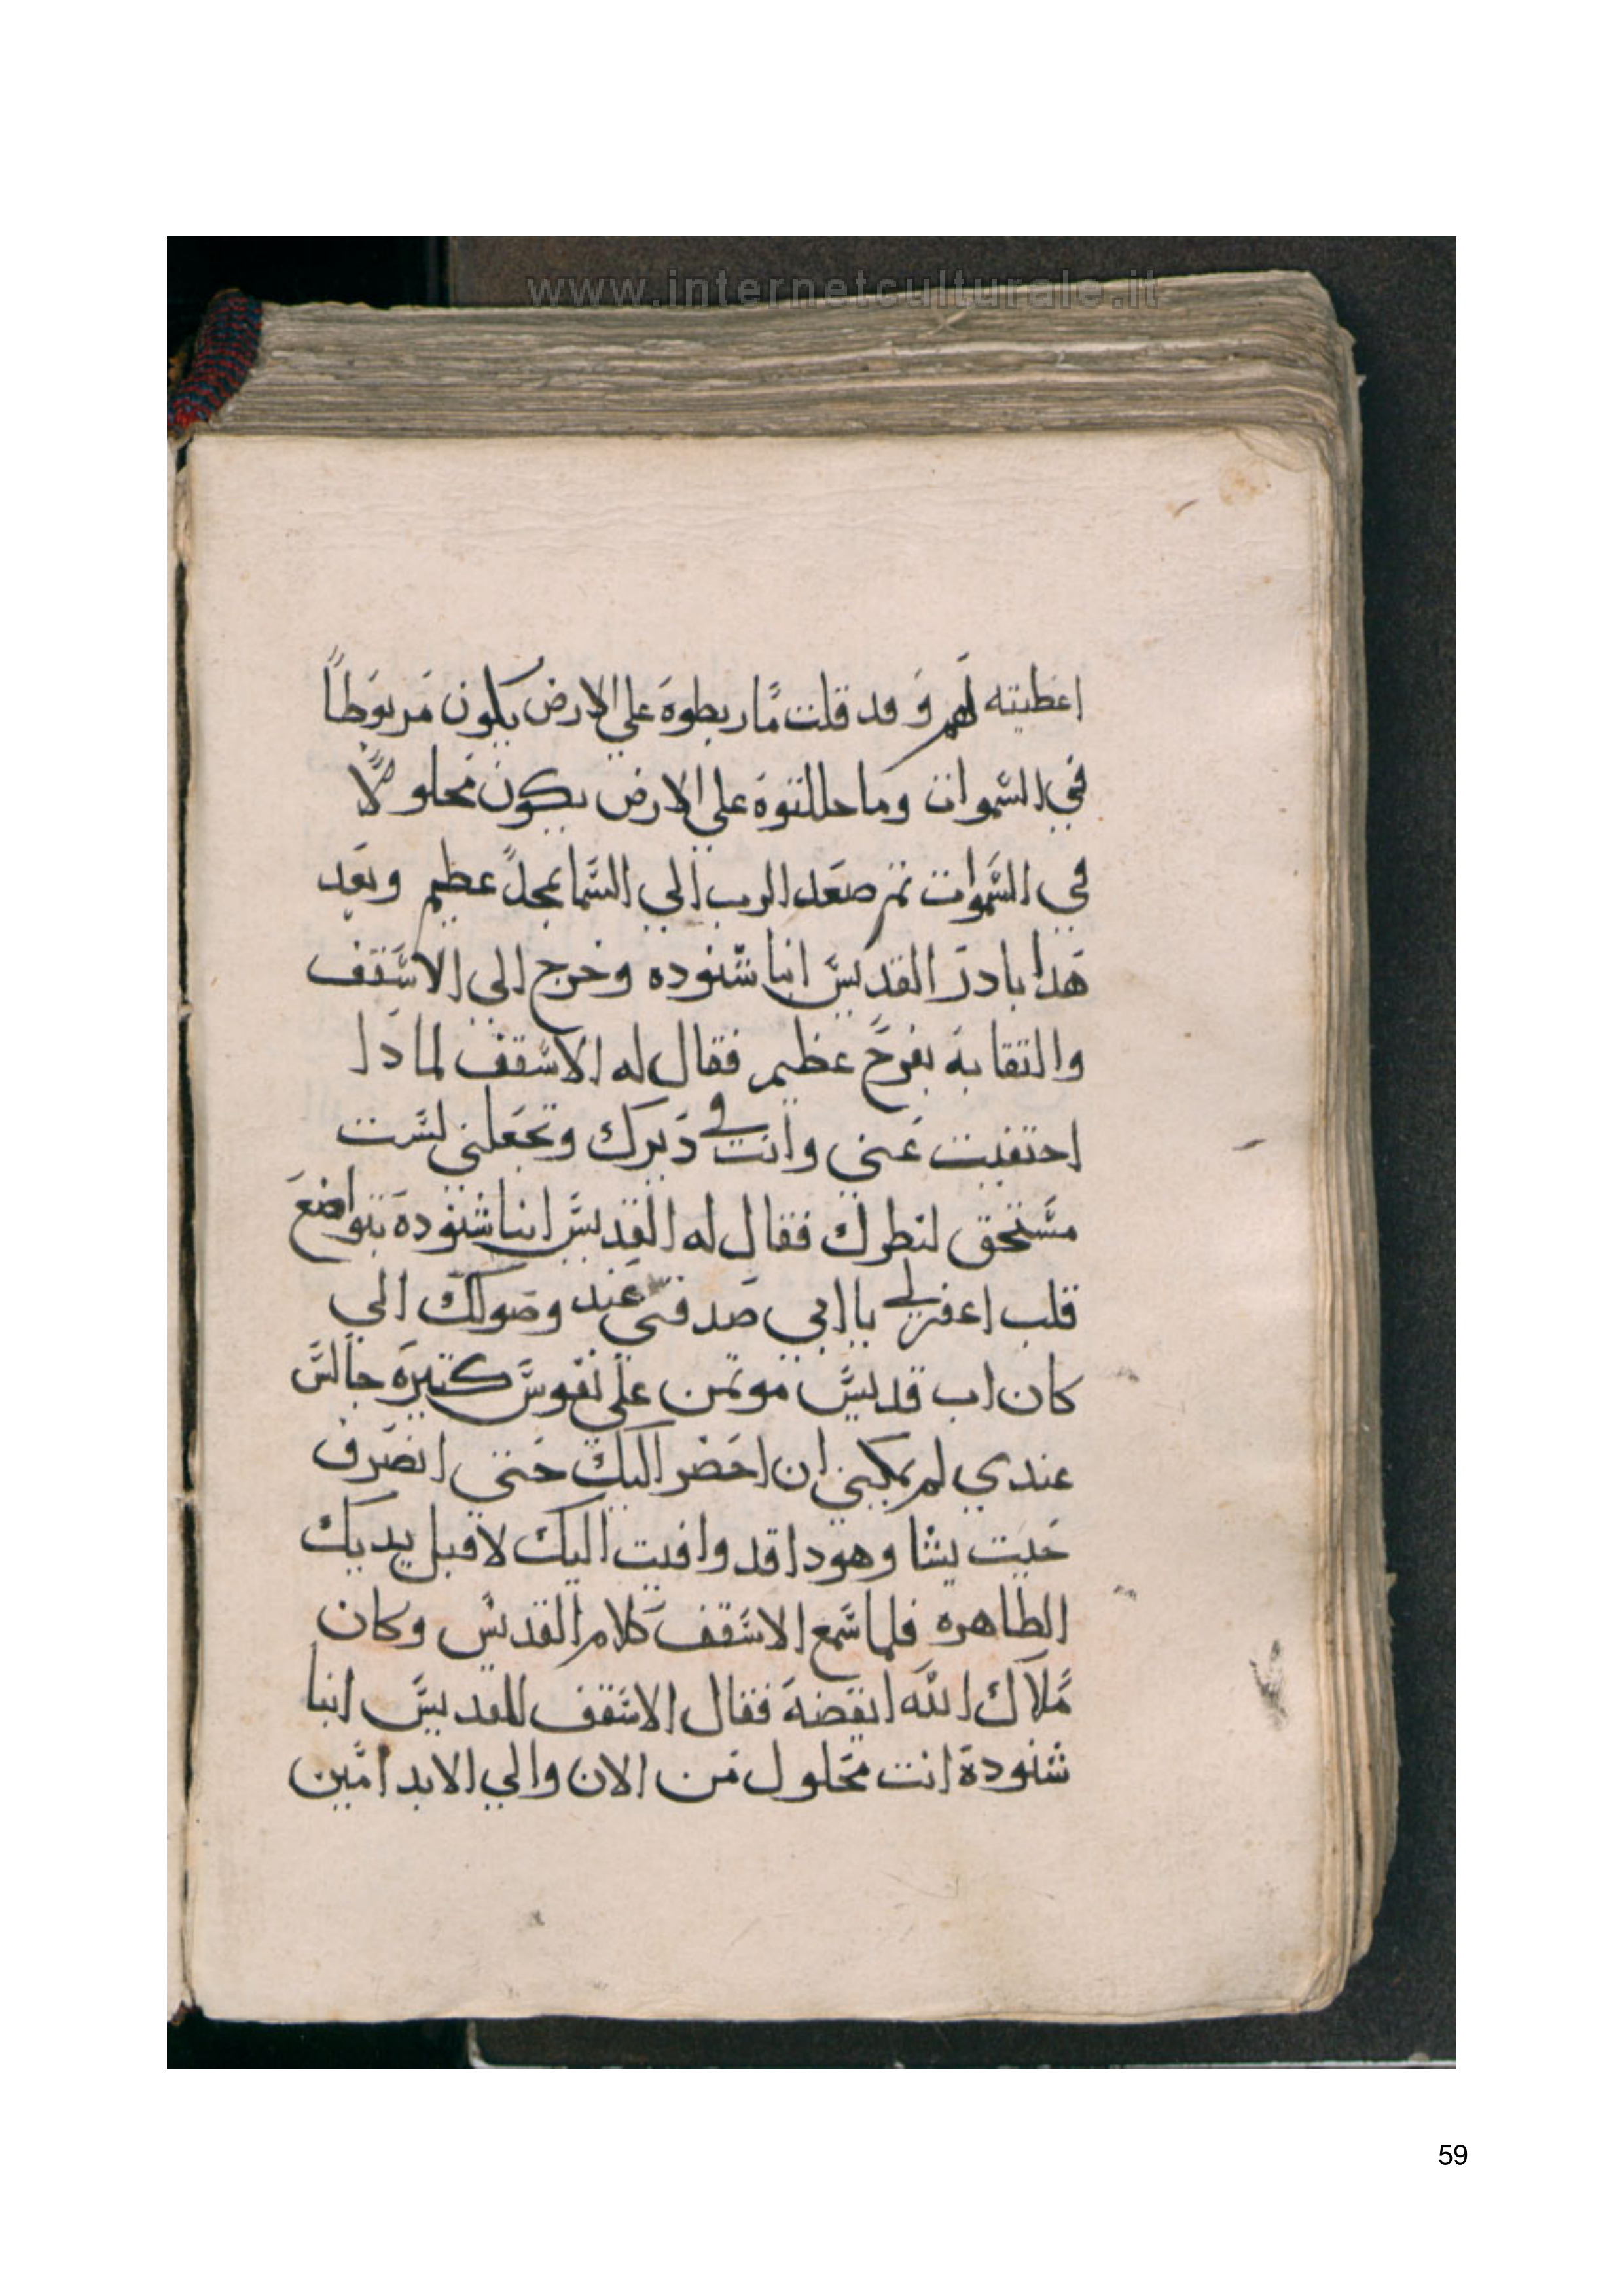 www.internetculturale.it
اعطيته لهم وقد قلت ما ربطوة علي الارض يكون مربوطاً
في السموات وما حللتوة علي الارض يكون محلولاً
في السموات تم صعد الرب الي السما بمجدً عظيم وبعد
هدا بادر القديس انبا شنوده وخرج الي الاسقف
والتقا به بفرح عظيم فقال له الاسقف لمادا
احتفيت عني وانت في ديرك وتجعلني لست
مستحق لنطرك فقال له القديس انبا شنودة بتواضع
قلب اغفر لي يا ابي صدقني عند وصولك الي
كان اب قديس موتمن علي نفوس كتيرة جالس
عندي لم يمكنني ان احضر اليك حتي انصرف
حيت يشا وهودا قد وافيت اليك لاقبل يديك
الطاهره فلما سمع الاسقف كلام القديس وكان
ملاك الله ايقضه فقال الاسقف للقديس انبا
شنودة انت محلول من الان والي الابد امين
59